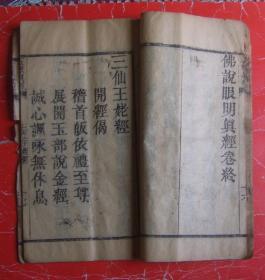 佛說眼明真經卷終
三仙王姥經
開經偈
稽首皈依禮至尊
展開玉部說金經
誠心諷咏無休息